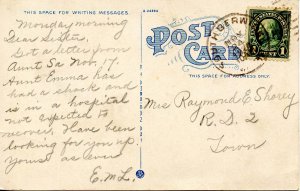 THIS SPACE FOR WRITING MESSAGES.
Monday morning
Dear Sister,
Got a letter from
Aunt Sa Nov. 17.
Aunt Emma has
had a shock and
is in a hospital
not expected to
recover. Have been
looking for you up.
Yours as ever
E.M.L.
POST
CARD
THIS SPACE FOR ADDRESS ONLY.
1 1
Mrs Raymond E Shorey
R.D. 2
Town